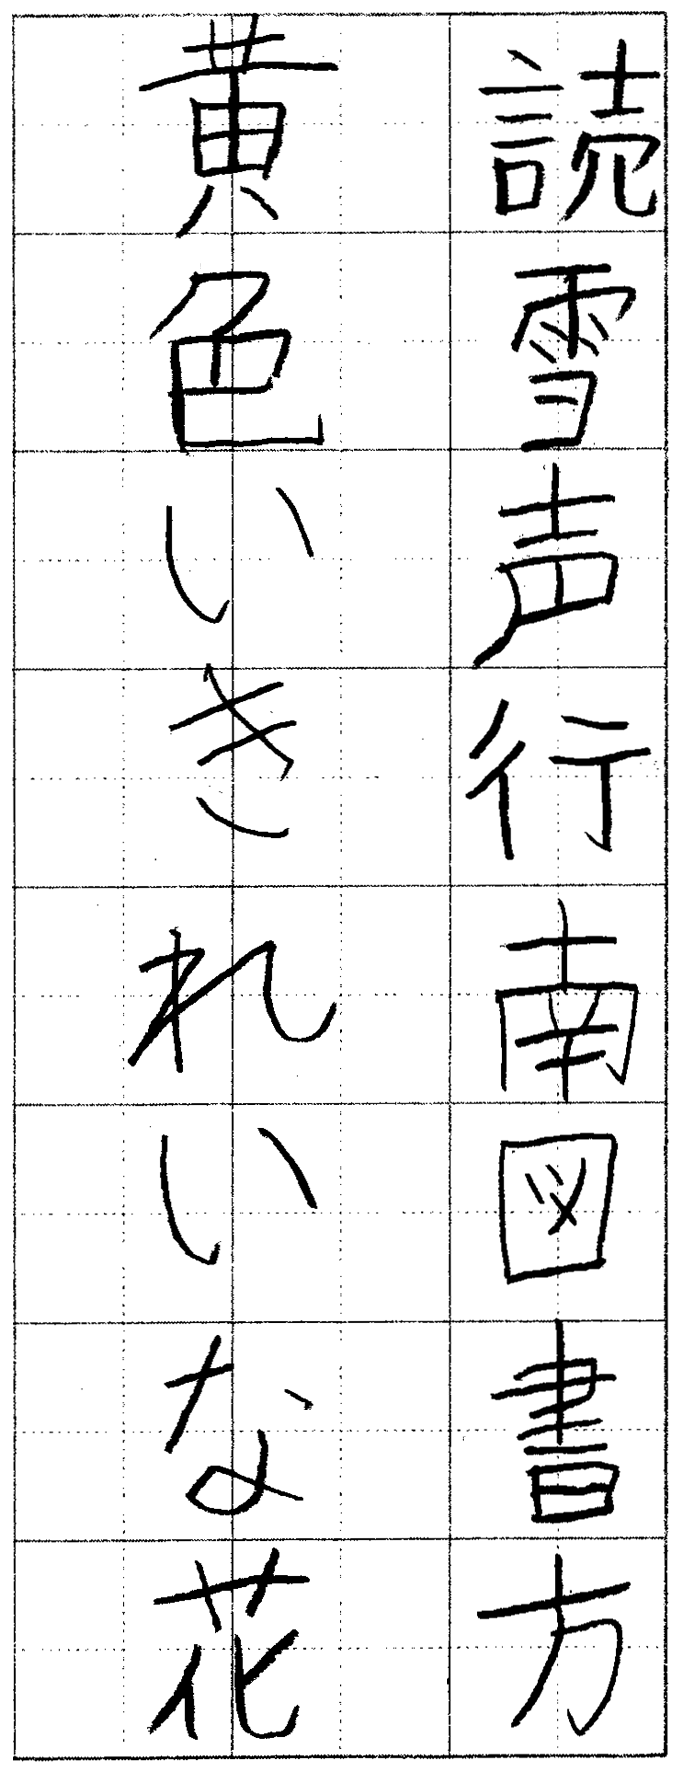 読雪声行南図書方
黄色いきれいな花